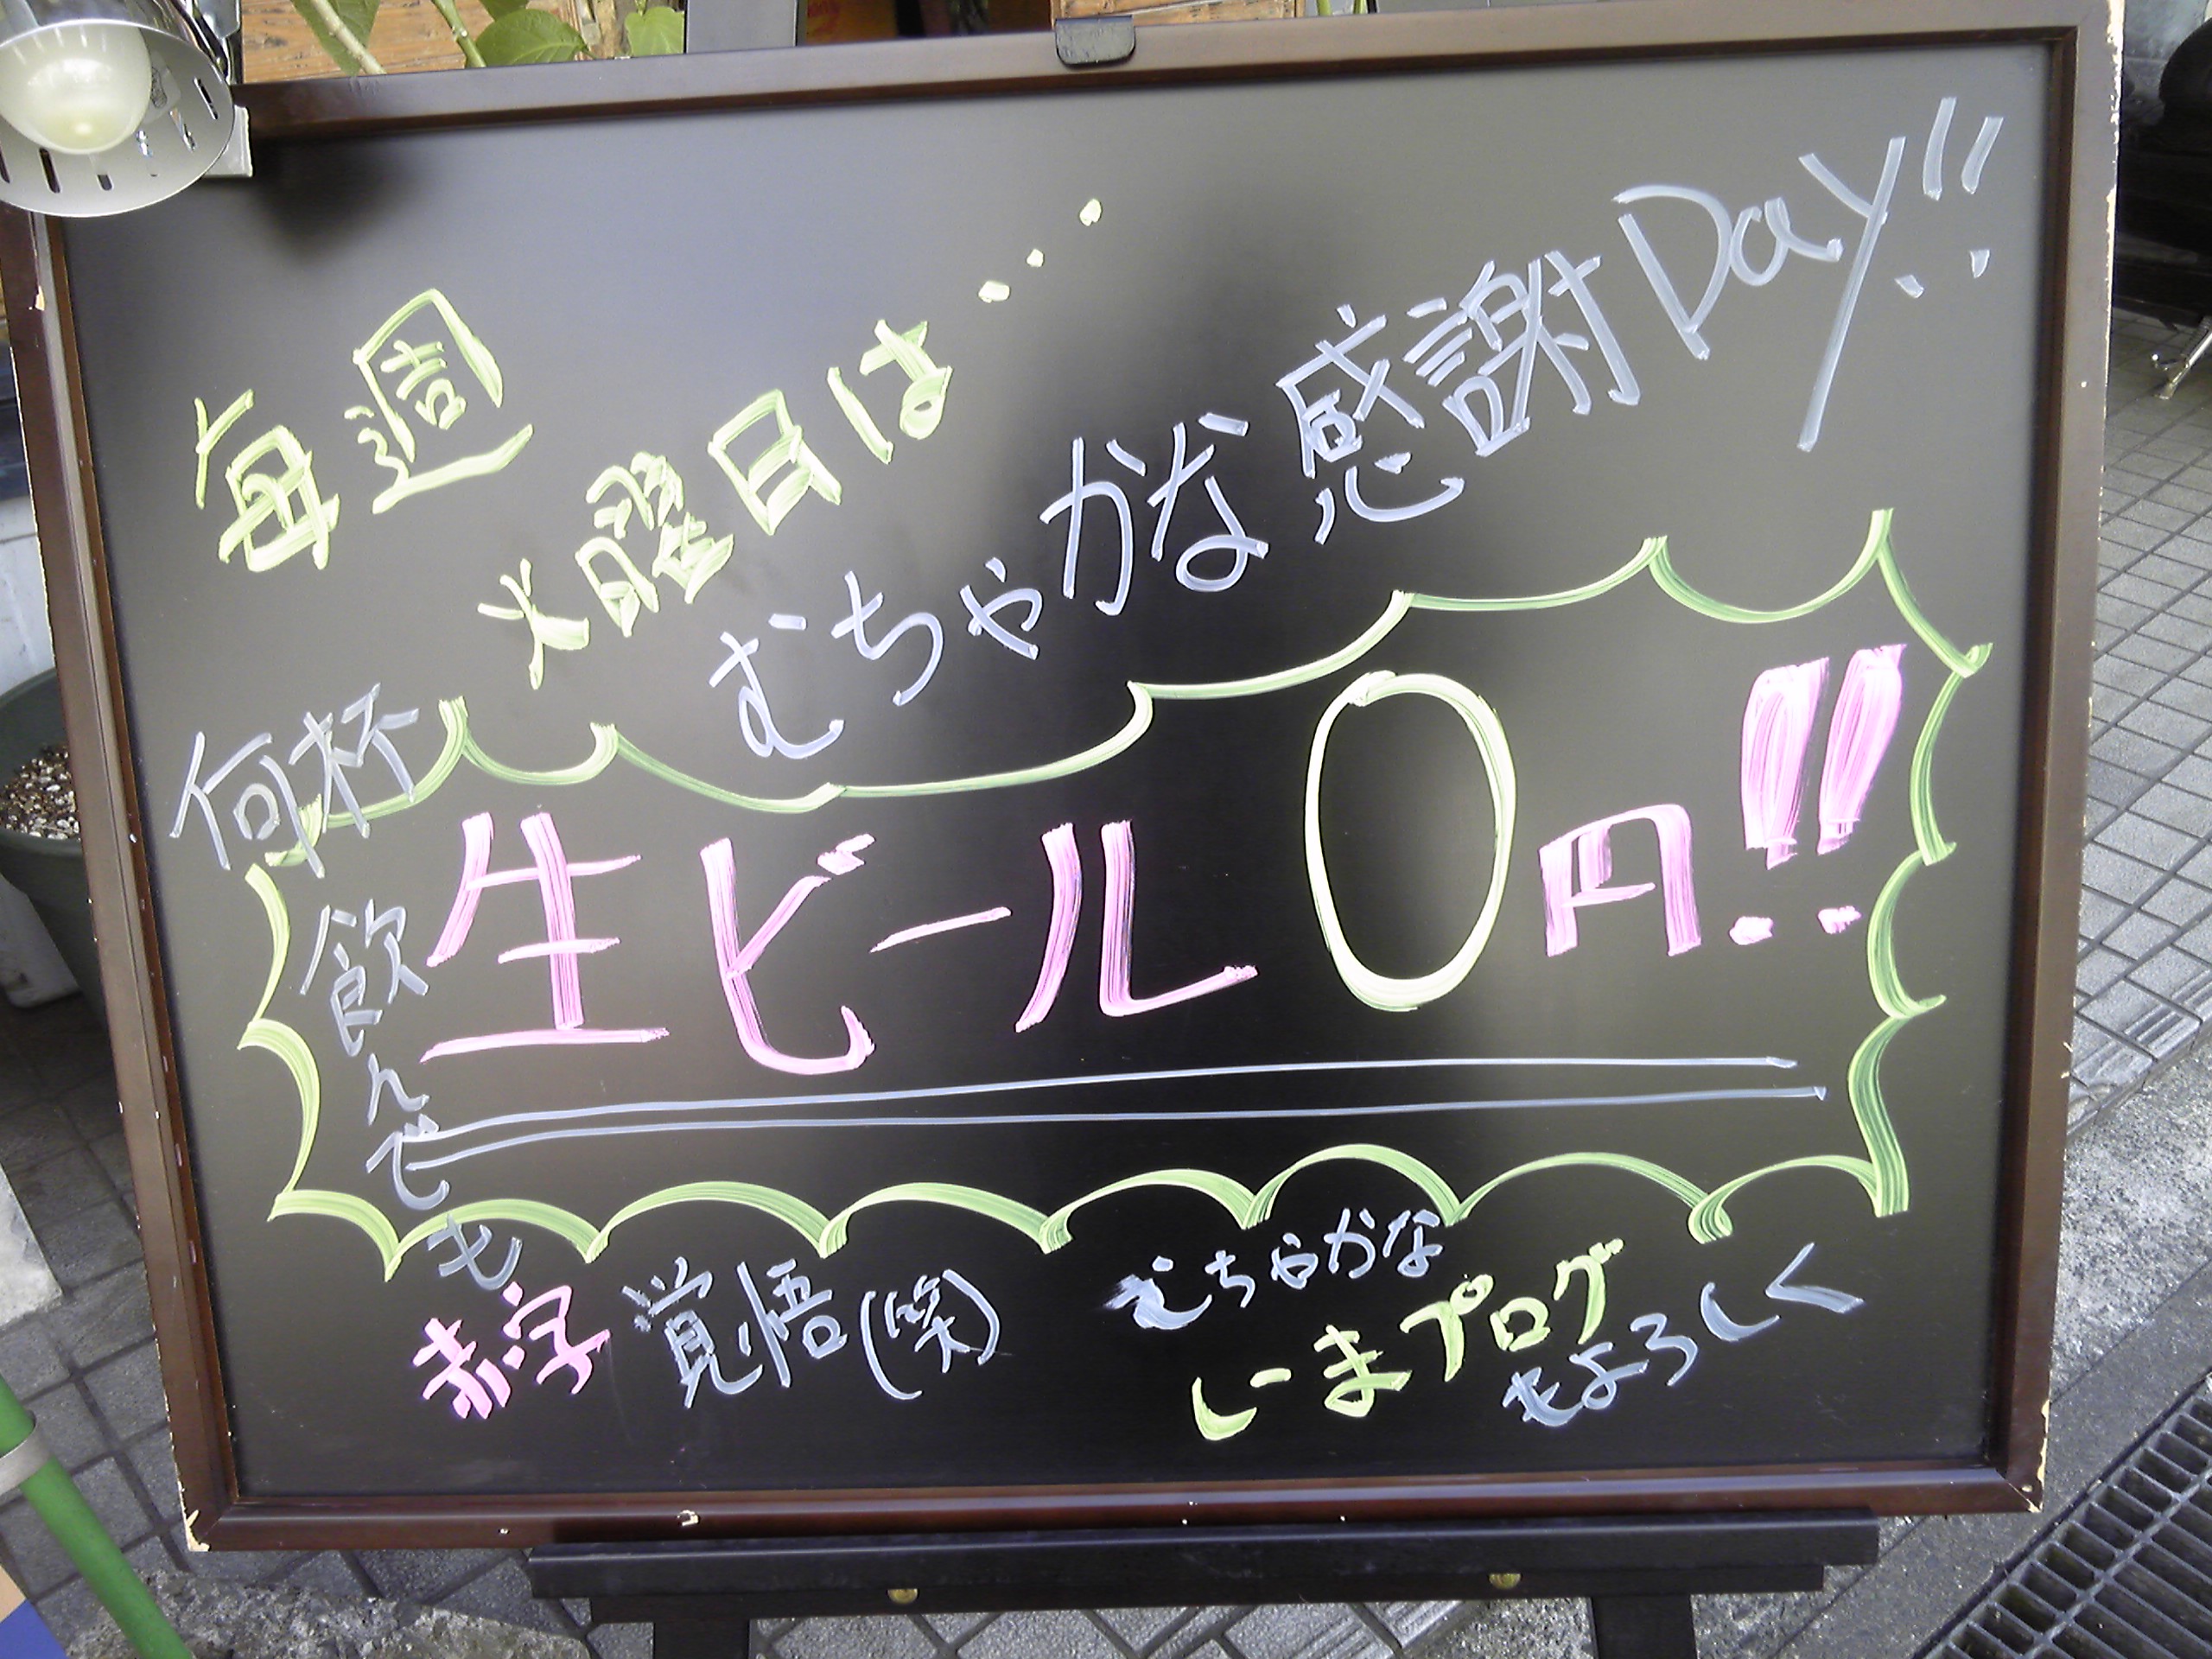 毎週
火曜日は…
むちゃかな感謝Day!!
何杯飲んでも
生ビール0円!!
赤字覚悟(笑)
むちゃかな
いまブログ
もよろしく